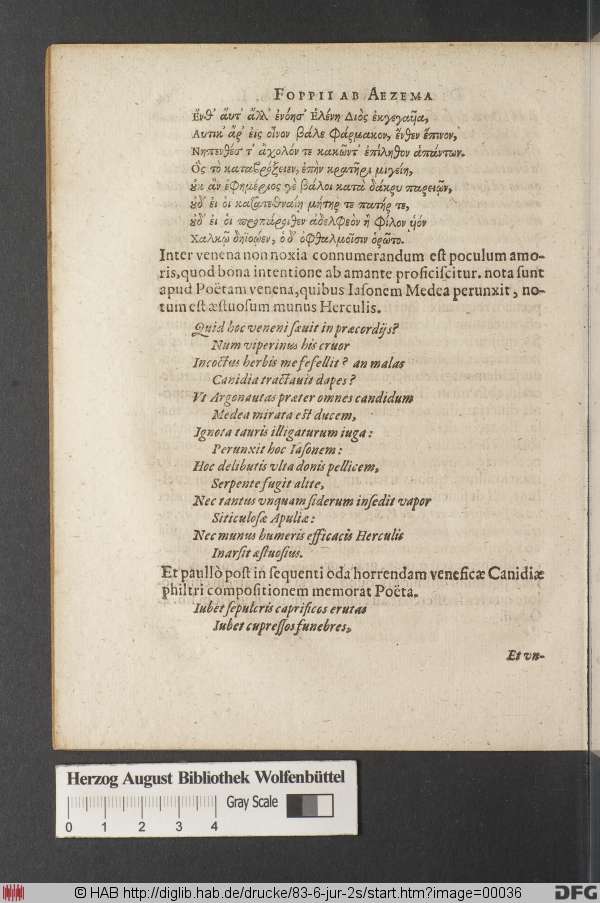 FOPPII AB AEZEMA
Ενθ' αὖτ' ἄλλ' ἐνόησ' Ελένη Διὸς ἐκγεγαῦα,
Αυτικ' ἄρ' εἰς οἶνον βάλε φάρμακον, ἔνθεν ἔπινον,
Νηπενθές τ' ἄχολόν τε κακῶντ' ἐπίληθον ἀπάντων.
Ος τὸ καταβρόξειεν, ἐπὴν κρατῆρι μιγείη,
ȣκ ἂν ἐφημέριος γὲ βάλοι κατὰ δάκρυ παρειῶν,
ȣδ' εἰ οἱ κατατεθναίη μήτηρ τε πατήρ τε,
ȣδ' εἰ οἱ προπάροιθεν ἀδελφεὸν ἢ φίλον ὑόν
Χαλκῷ δηϊόῳεν, ὁ δ' ὀφθαλμοῖσιν ὁρῶτο.
Inter venena non noxia connumerandum est poculum amo-
ris, quod bona intentione ab amante proficiscitur. nota sunt
apud Poëtam venena, quibus Iasonem Medea perunxit, no-
tum est æstuosum munus Herculis.
Quid hoc veneni sæuit in præcordijs?
Num viperinus his cruor
Incoctus herbis me fefellit? an malas
Canidia tractauit dapes?
Vt Argonautas præter omnes candidum
Medea mirata est ducem,
Ignota tauris illigaturum iuga:
Perunxit hoc Iasonem:
Hoc delibutis vlta donis pellicem,
Serpente fugit alite,
Nec tantus vnquam siderum insedit vapor
Siticulosæ Apuliæ:
Nec munus humeris efficacis Herculis
Inarsit æstuosius.
Et paullò post in sequenti oda horrendam veneficæ Canidiæ
philtri compositionem memorat Poëta.
Iubet sepulcris caprificos erutas
Iubet cupressos funebres,
Et vn-
Herzog August Bibliothek Wolfenbüttel
Gray Scale
0 1 2 3 4
© HAB http://diglib.hab.de/drucke/83-6-jur-2s/start.htm?image=00036
DFG